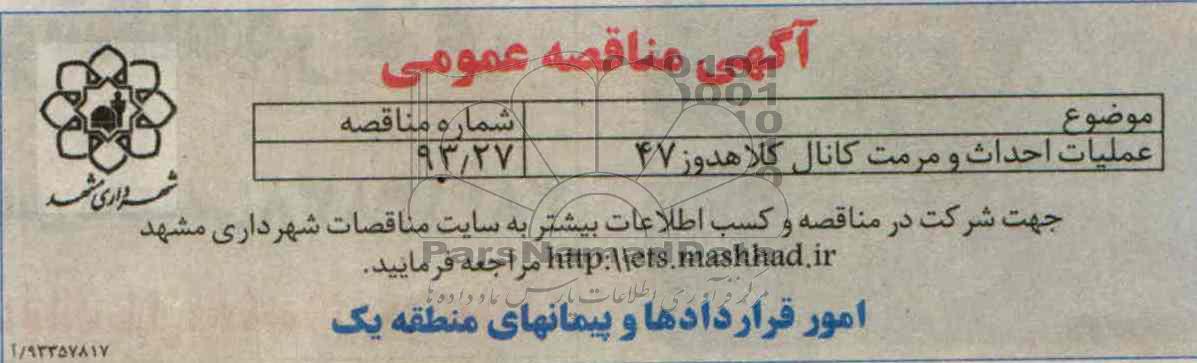 آگهی مناقصه عمومی
موضوع شماره مناقصه
عملیات احداث و مرمت کانال کلاهدوز ۴۷ ۹۳/۲۷
شهرداری مشهد
جهت شرکت در مناقصه و کسب اطلاعات بیشتر به سایت مناقصات شهرداری مشهد
http:\\ets.mashhad.ir مراجعه فرمایید.
امور قراردادها و پیمانهای منطقه یک
۹۳۳۵۷۸۱۷/آ
ParsNamadData